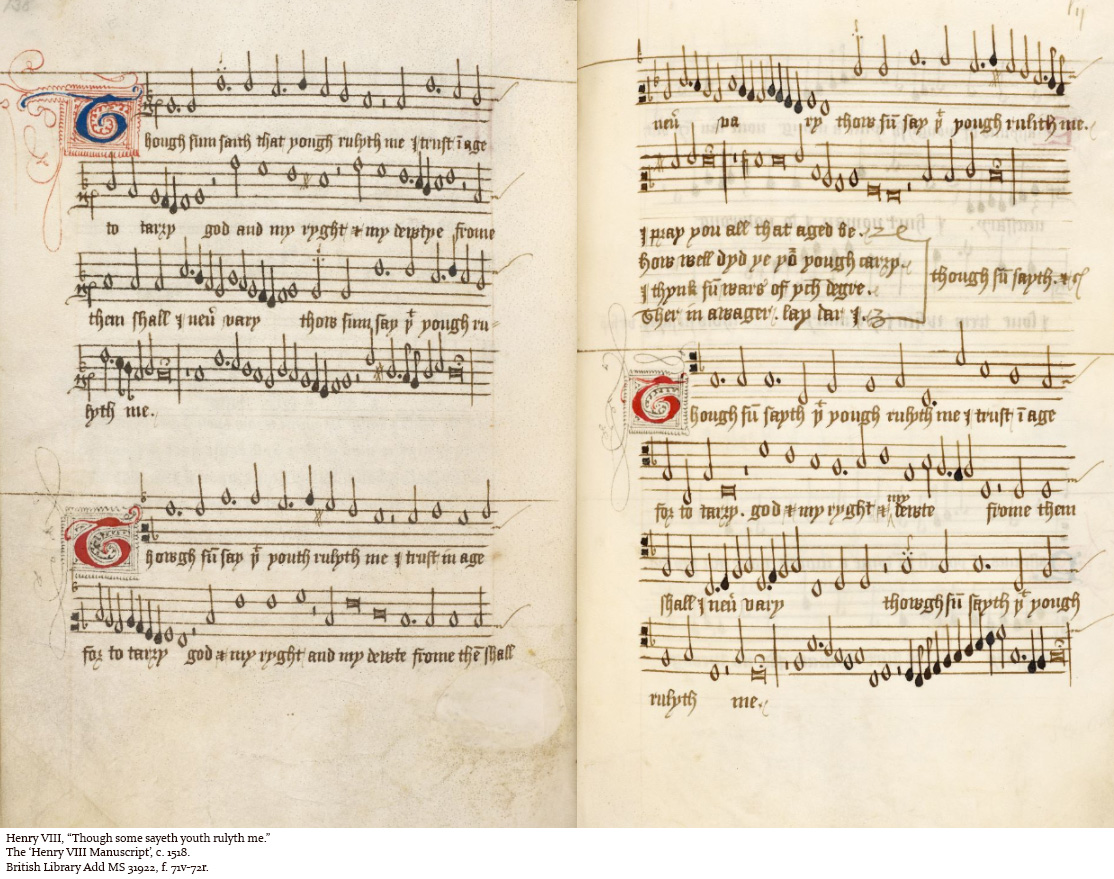 Though sum saith that yough rulyth me I trust ī age
to tarry god and my ryght & my dewtye frome
them shall I neu̾ vary thow sum say yͭ yough ru
lyth me.
Thowgh sū say yͭ youth rulyth me I trust in age
for to tarry god & my ryght and my dewte frome thē shall
neu̾ va ry thow sū say yͭ yough rulith me.
I pray you all that aged be.
how well dyd ye yō yough carry.
I thynk sū wars of ych degre.
Ther in a wager lay dar I.
though sū sayth. &c
Though sū sayth yͭ yough rulyth me I trust ī age
for to tarry. god & my ryght & my dewte frome them
shall I neu̾ vary thowgh sū sayth yͭ yough
rulyth me.
Henry VIII, “Though some sayeth youth rulyth me.”
The ‘Henry VIII Manuscript’, c. 1518.
British Library Add MS 31922, f. 71v-72r.